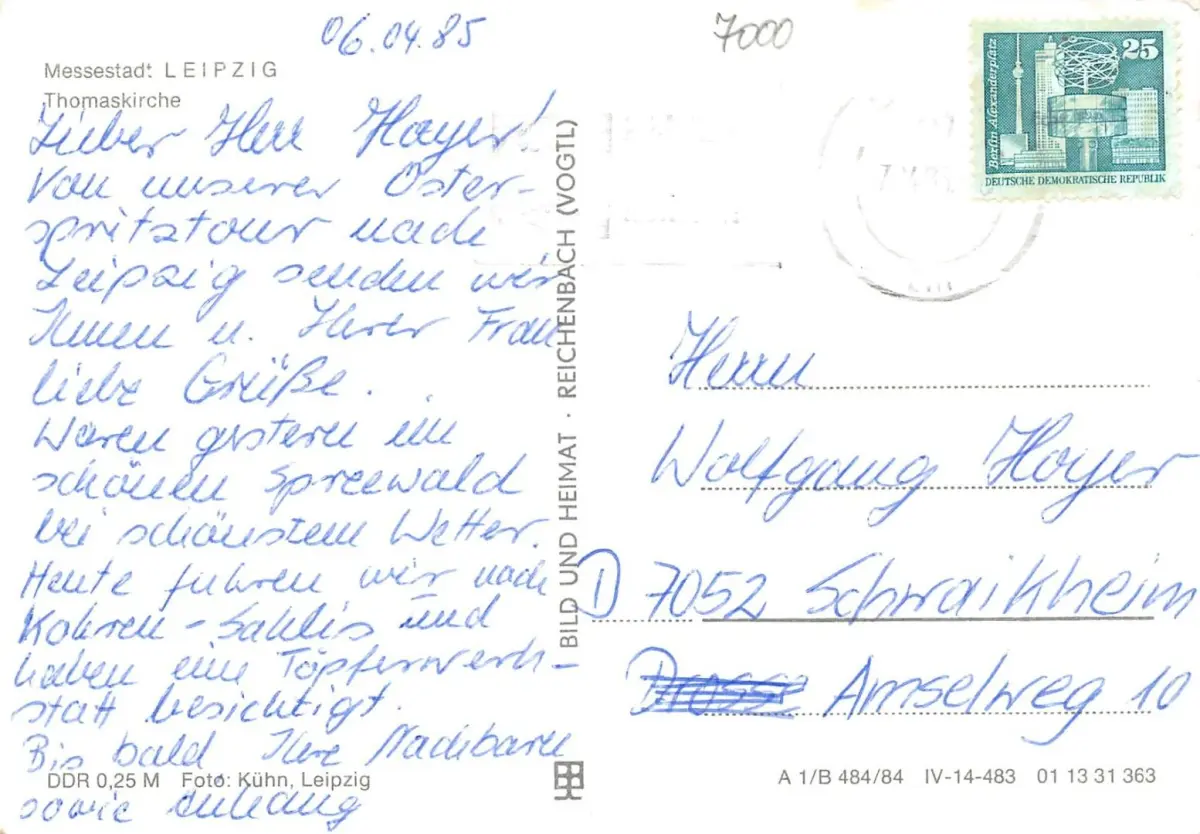 06.04.85
7000
Messestadt LEIPZIG
Thomaskirche
Lieber Herr Hoyer!
Von unserer Oster-
spritztour nach
Leipzig senden wir
Ihnen u. Ihrer Frau
liebe Grüße.
Waren gestern im
schönen Spreewald
bei schönstem Wetter.
Heute fuhren wir nach
Kohren-Sahlis und
haben eine Töpferwerk-
statt besichtigt.
Bis bald Ihre Nachbarn
sowie Anhang
DDR 0,25 M Foto: Kühn, Leipzig
BILD UND HEIMAT · REICHENBACH (VOGTL)
25
Berlin Alexanderplatz
DEUTSCHE DEMOKRATISCHE REPUBLIK
Herrn
Wolfgang Hoyer
D 7052 Schwaikheim
Amselweg 10
A 1/B 484/84 IV-14-483 01 13 31 363